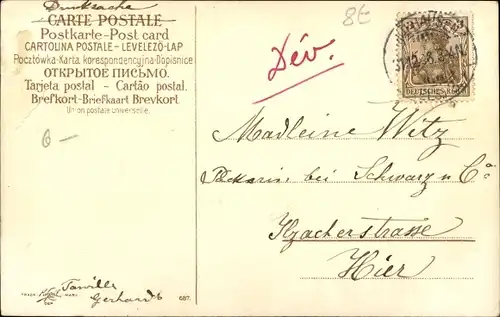 Drucksache
CARTE POSTALE
Postkarte-Post card
CARTOLINA POSTALE-LEVELEZÖ-LAP
Pocztówka-Karta korespondencyjna-Dopisnice
ОТКРЫТОЕ ПИСЬМО.
Tarjeta postal - Cartão postal.
Brefkort-Briefkaart Brevkort.
Union postale universelle.
8E
Dév.
DEUTSCHES REICH
6-
Madleine Witz
bei Schwarz u. Co
Hier
TRADE MARK
Familie
Gerhards
687.